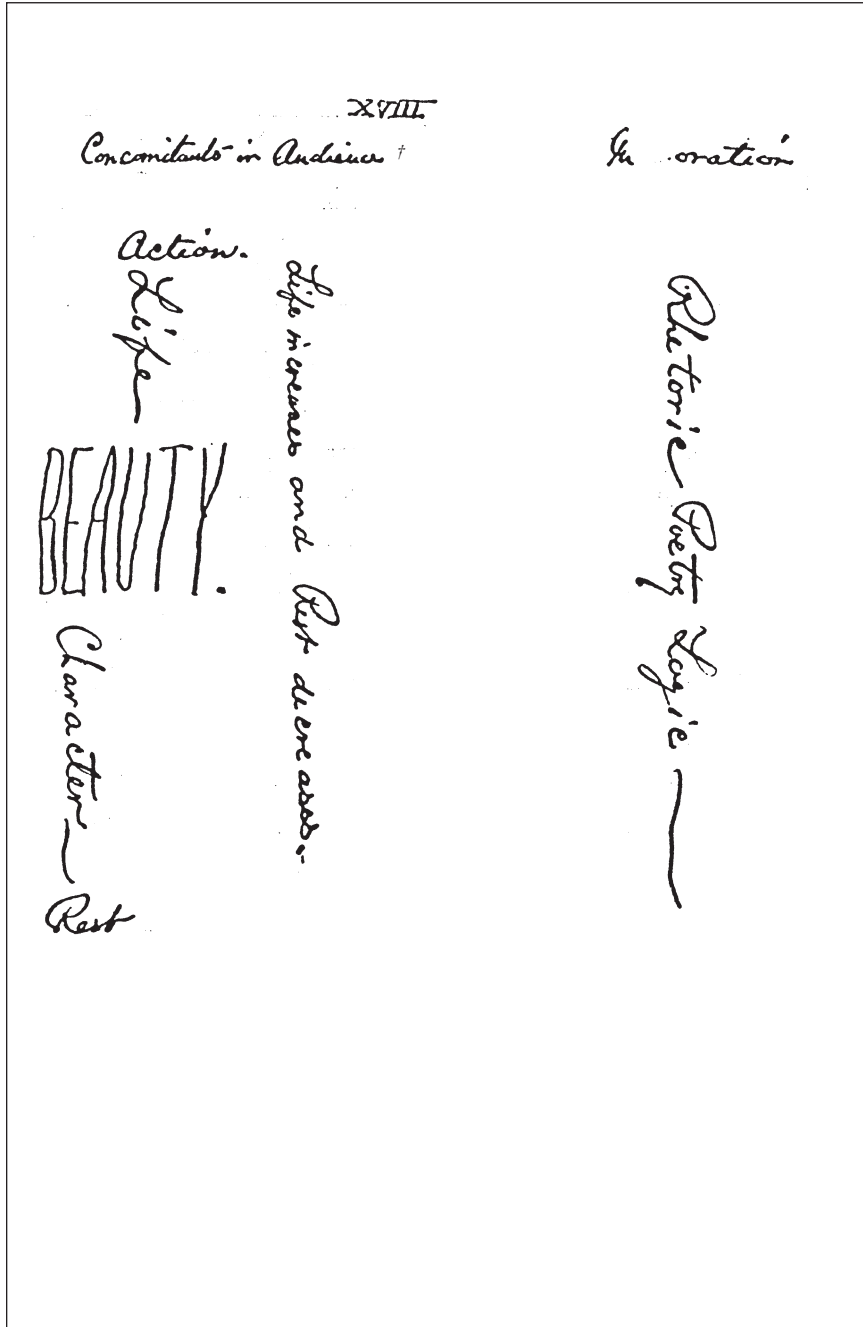 XVIII.
Concomitants in Audience †
In oration
Action.
Life
BEAUTY.
Character
Rest
Life increases and Rest decreases.
Rhetoric Poetry Logic